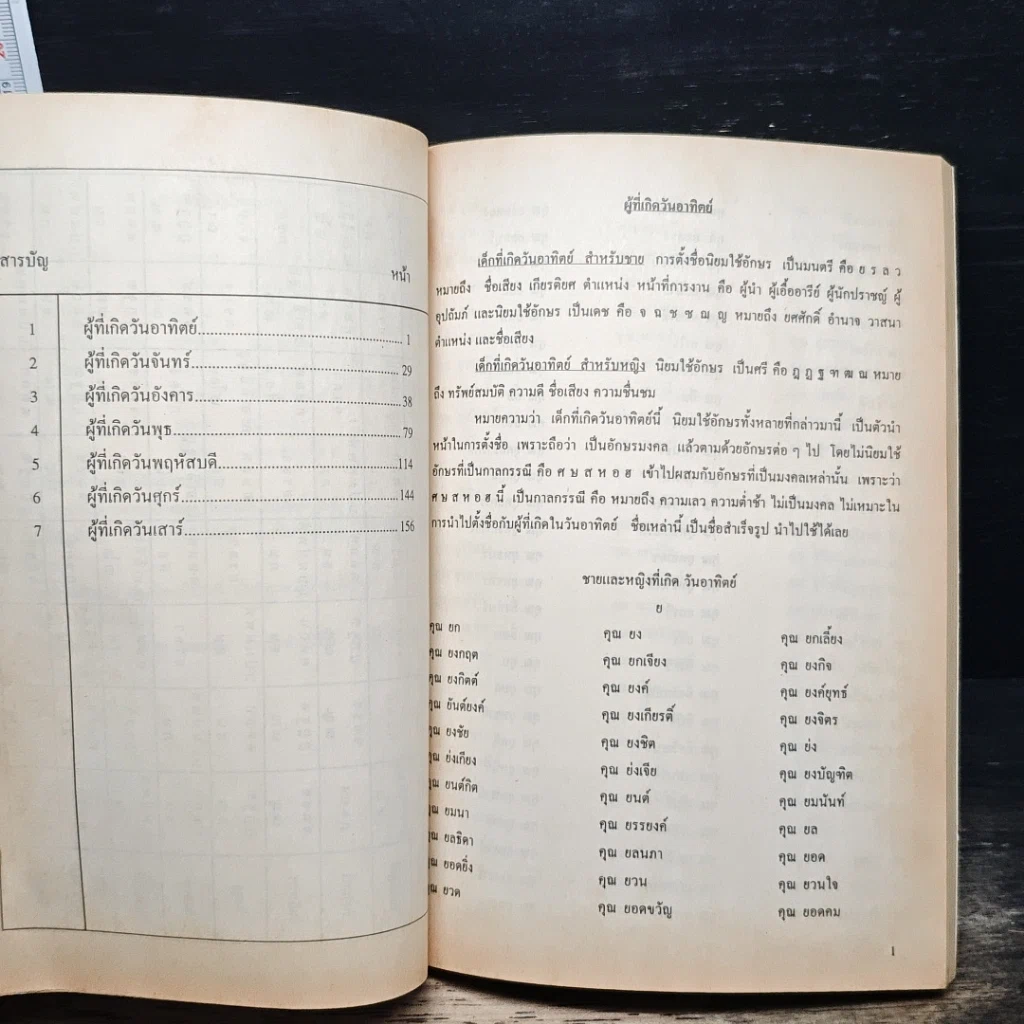 สารบัญ
หน้า
1 ผู้ที่เกิดวันอาทิตย์ 1
2 ผู้ที่เกิดวันจันทร์ 29
3 ผู้ที่เกิดวันอังคาร 38
4 ผู้ที่เกิดวันพุธ 79
5 ผู้ที่เกิดวันพฤหัสบดี 114
6 ผู้ที่เกิดวันศุกร์ 144
7 ผู้ที่เกิดวันเสาร์ 156
ผู้ที่เกิดวันอาทิตย์
เด็กที่เกิดวันอาทิตย์ สำหรับชาย การตั้งชื่อนิยมใช้อักษร เป็นมนตรี คือ ย ร ล ว
หมายถึง ชื่อเสียง เกียรติยศ ตำแหน่ง หน้าที่การงาน คือ ผู้นำ ผู้เอื้ออารีย์ ผู้นักปราชญ์ ผู้
อุปถัมภ์ และนิยมใช้อักษร เป็นเดช คือ จ ฉ ช ซ ฌ ญ หมายถึง ยศศักดิ์ อำนาจ วาสนา
ตำแหน่ง และชื่อเสียง
เด็กที่เกิดวันอาทิตย์ สำหรับหญิง นิยมใช้อักษร เป็นศรี คือ ฎ ฏ ฐ ฑ ฒ ณ หมาย
ถึง ทรัพย์สมบัติ ความดี ชื่อเสียง ความชื่นชม
หมายความว่า เด็กที่เกิดวันอาทิตย์นี้ นิยมใช้อักษรทั้งหลายที่กล่าวมานี้ เป็นตัวนำ
หน้าในการตั้งชื่อ เพราะถือว่า เป็นอักษรมงคล แล้วตามด้วยอักษรต่อ ๆ ไป โดยไม่นิยมใช้
อักษรที่เป็นกาลกรรณี คือ ศ ษ ส ห อ ฮ เข้าไปผสมกับอักษรที่เป็นมงคลเหล่านั้น เพราะว่า
ศ ษ ส ห อ ฮ นี้ เป็นกาลกรรณี คือ หมายถึง ความเลว ความต่ำช้า ไม่เป็นมงคล ไม่เหมาะใน
การนำไปตั้งชื่อกับผู้ที่เกิดในวันอาทิตย์ ชื่อเหล่านี้ เป็นชื่อสำเร็จรูป นำไปใช้ได้เลย
ชายและหญิงที่เกิด วันอาทิตย์
ย
คุณ ยก คุณ ยง คุณ ยกเลี้ยง
คุณ ยงกฤต คุณ ยกเจียง คุณ ยงกิจ
คุณ ยงกิตต์ คุณ ยงค์ คุณ ยงค์ยุทธ์
คุณ ยันต์ยงค์ คุณ ยงเกียรติ์ คุณ ยงจิตร
คุณ ยงชัย คุณ ยงชิต คุณ ย่ง
คุณ ย่งเกียง คุณ ย่งเจีย คุณ ยงบัญฑิต
คุณ ยนต์กิต คุณ ยนต์ คุณ ยมนันท์
คุณ ยมนา คุณ ยรรยงค์ คุณ ยล
คุณ ยลธิดา คุณ ยลนภา คุณ ยอด
คุณ ยอดยิ่ง คุณ ยวน คุณ ยวนใจ
คุณ ยวด คุณ ยอดขวัญ คุณ ยอดคม
1